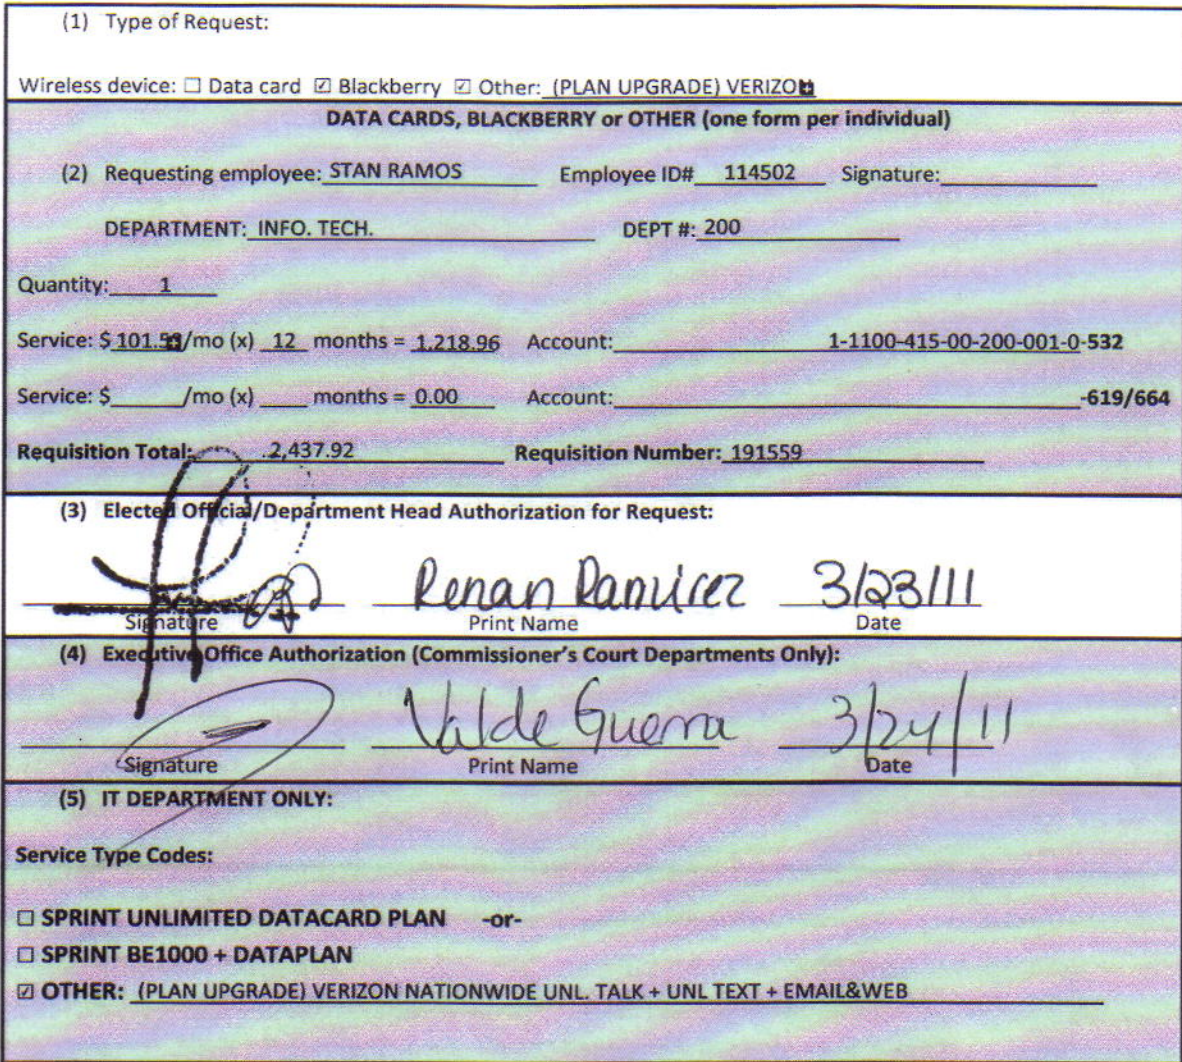 (1) Type of Request:
Wireless device: ☐ Data card ☑ Blackberry ☑ Other: (PLAN UPGRADE) VERIZO
DATA CARDS, BLACKBERRY or OTHER (one form per individual)
(2) Requesting employee: STAN RAMOS Employee ID# 114502 Signature:
DEPARTMENT: INFO. TECH. DEPT #: 200
Quantity: 1
Service: $ 101.5 /mo (x) 12 months = 1,218.96 Account: 1-1100-415-00-200-001-0-532
Service: $ /mo (x) months = 0.00 Account: -619/664
Requisition Total: 2,437.92 Requisition Number: 191559
(3) Elected Official/Department Head Authorization for Request:
Renan Ramirez 3/23/11
Signature Print Name Date
(4) Executive Office Authorization (Commissioner's Court Departments Only):
Valde Guerra 3/24/11
Signature Print Name Date
(5) IT DEPARTMENT ONLY:
Service Type Codes:
☐ SPRINT UNLIMITED DATACARD PLAN -or-
☐ SPRINT BE1000 + DATAPLAN
☑ OTHER: (PLAN UPGRADE) VERIZON NATIONWIDE UNL. TALK + UNL TEXT + EMAIL&WEB